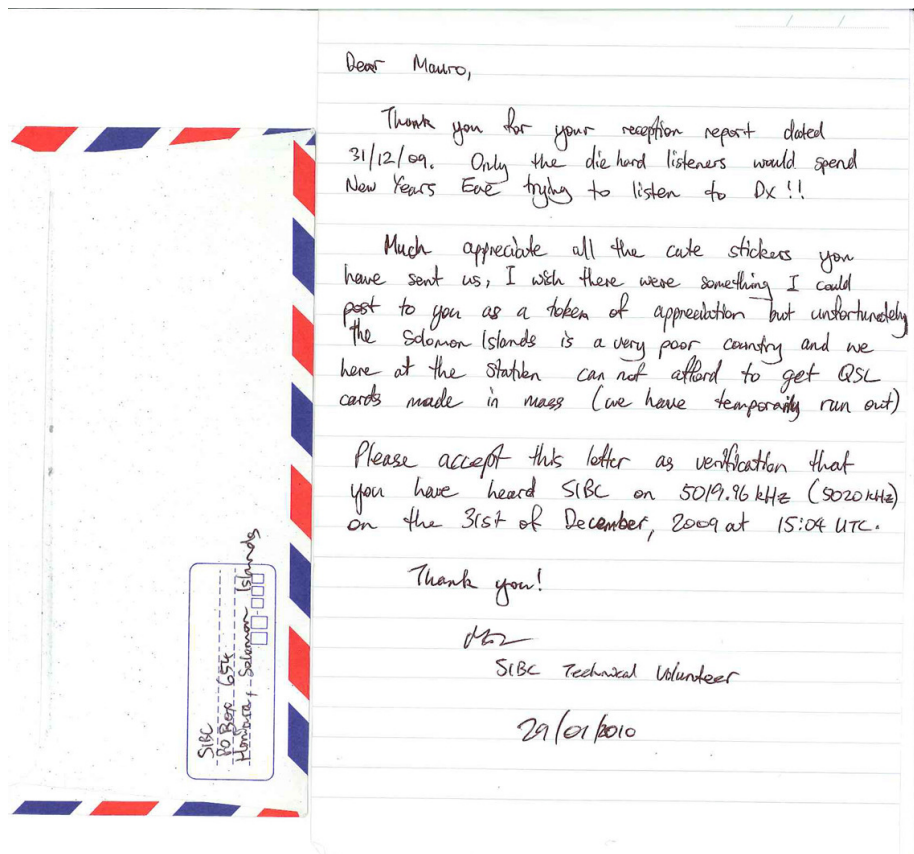 Dear Mauro,
Thank you for your reception report dated
31/12/09. Only the die hard listeners would spend
New Years Eve trying to listen to Dx !!
Much appreciate all the cute stickers you
have sent us, I wish there were something I could
post to you as a token of appreciation but unfortunately
the Solomon Islands is a very poor country and we
here at the station can not afford to get QSL
cards made in mass (we have temporarily run out)
Please accept this letter as verification that
you have heard SIBC on 5019.96 kHz (5020 kHz)
on the 31st of December, 2009 at 15:04 UTC.
Thank you!
SIBC Technical Volunteer
29/01/2010
SIBC
PO Box 654
Honiara, Solomon Islands